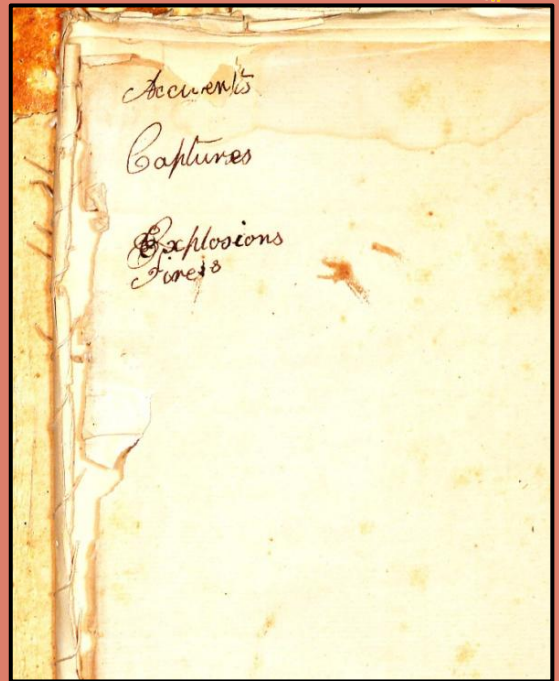 Accidents
Captures
Explosions
Fires